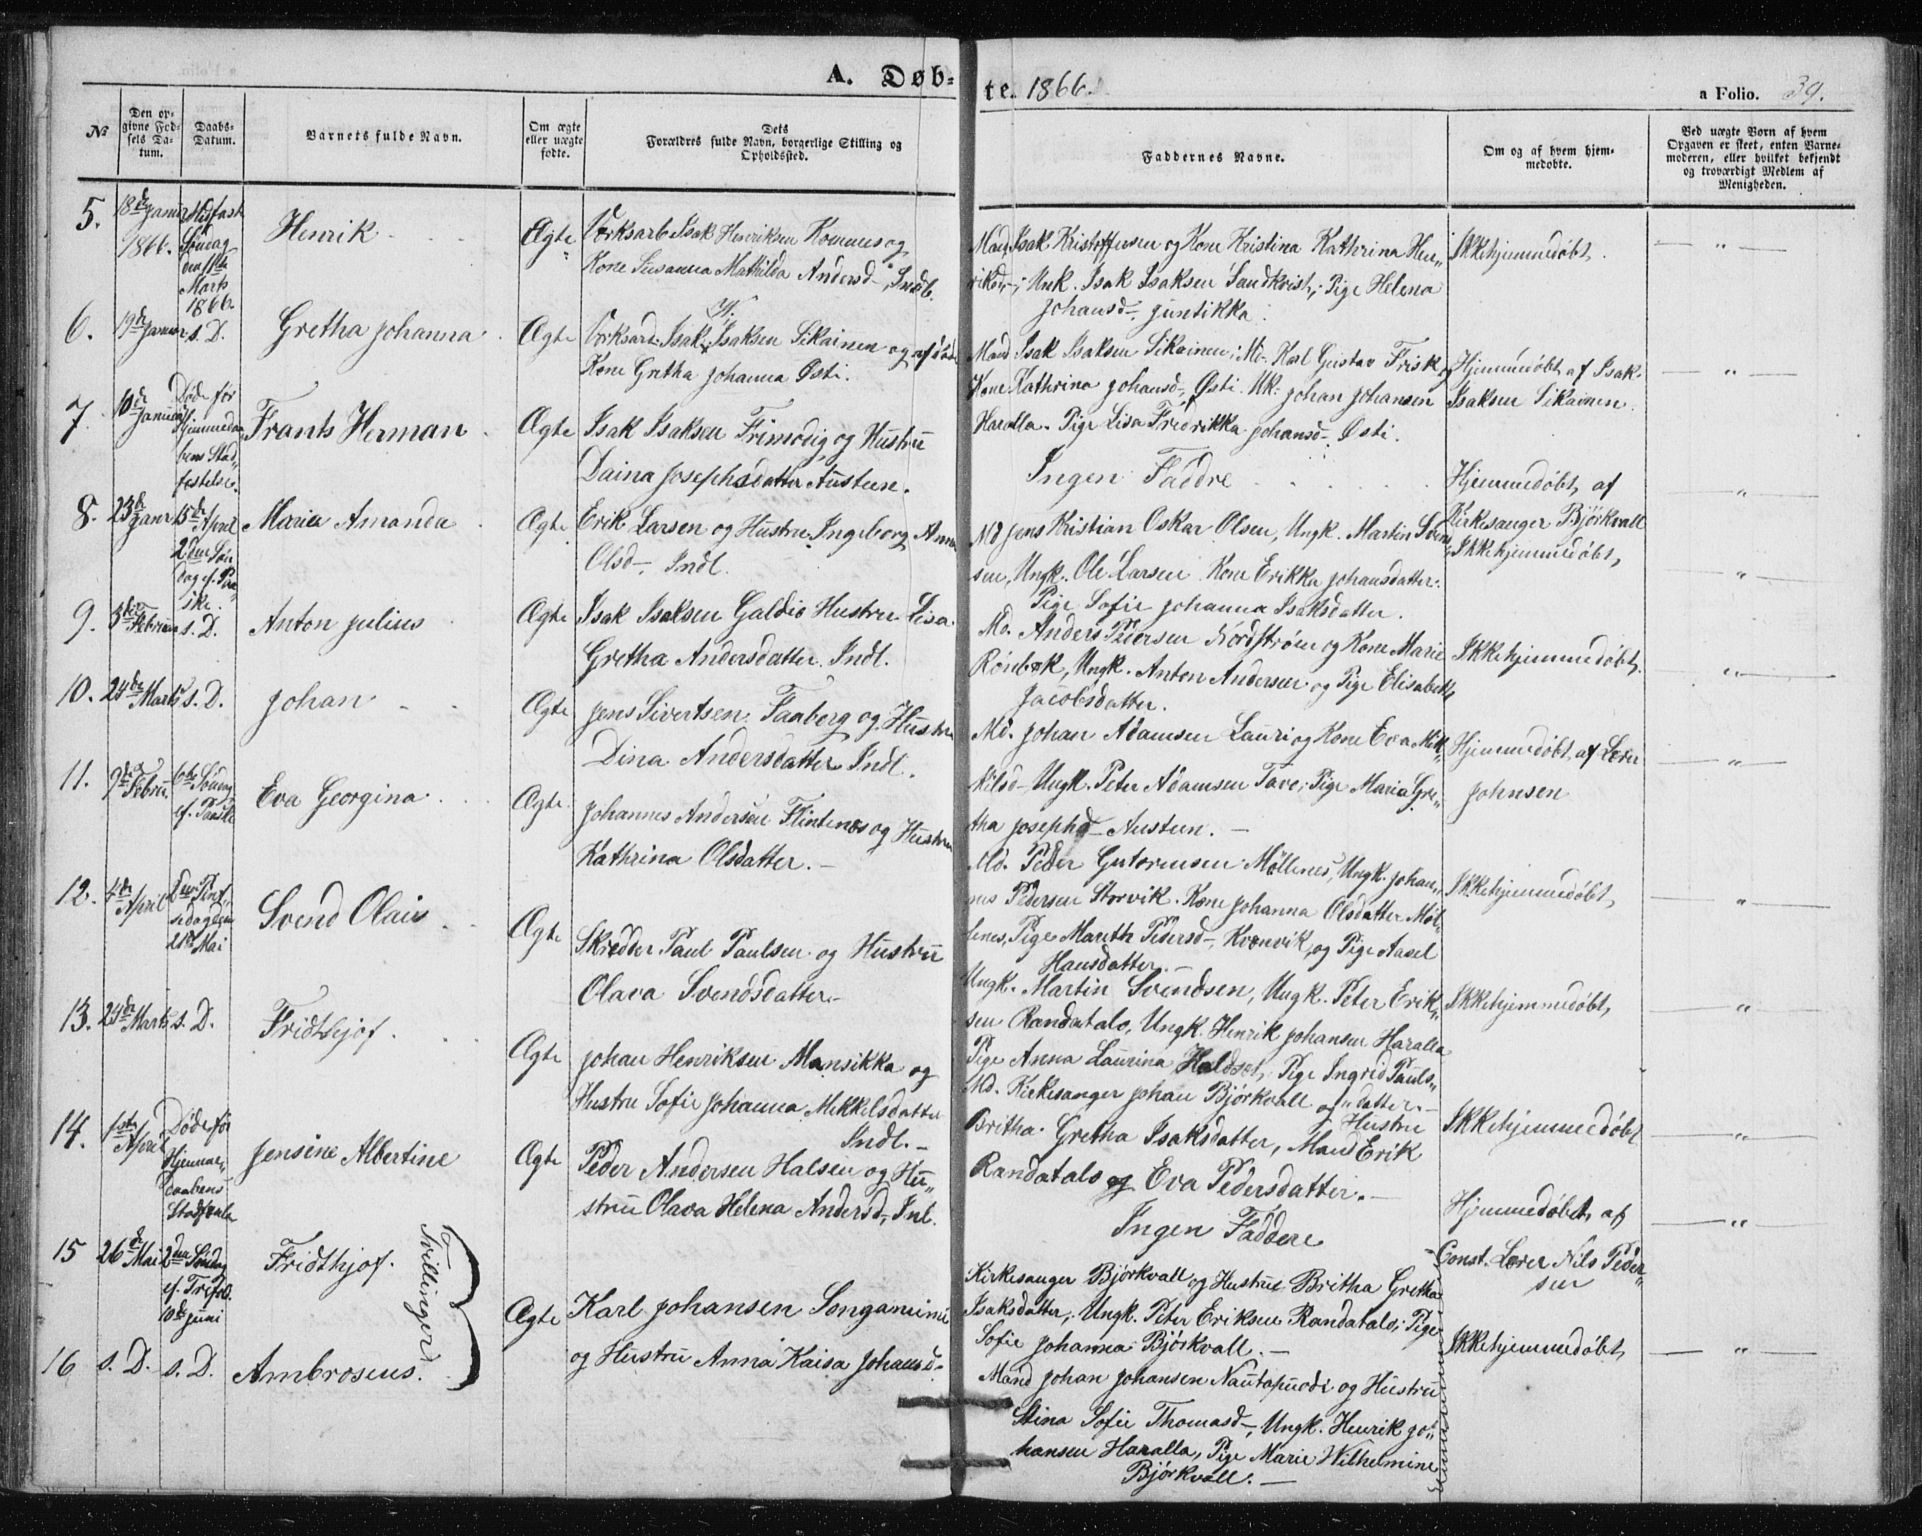 A. Døb-
te. 1866.
a Folio. 39.
№
Den opgivne Fødsels Datum.
Daabs-Datum.
Barnets fulde Navn.
Om ægte eller uægte fødte.
Dets Forældres fulde Navn, borgerlige Stilling og Opholdssted.
Faddernes Navne.
Om og af hvem hjemmedøbte.
Ved uægte Born af hvem Opgaven er skeet, enten Barnemoderen, eller hvilket bekjendt og troværdigt Medlem af Menigheden.
5.
18de Januar
1866.
Midfaste
Søndag
den 11te
Marts
1866.
Henrik
Ægte
Værksarb Isak Henriksen Kommes og
Kone Susanna Mathilda Andersd-, Indl.
Mand Isak Kristoffersen og Kone Kristina Kathrina Hen„
riksd-; Unk. Isak Isaksen Sandkvist; Pige Helena
Johansd-, Juntikka.
Ikkehjemmedøbt.
6.
19de Januar
s. D.
Gretha Johanna
Ægte
Værksarb. Isak Isaksen Sikainen og afdøde
Kone Gretha Johanna Østi.
Mand Isak Isaksen Sikainen; Md. Karl Gustav Frisk og
Kone Kathrina Johansd-, Østi. Uk. Johan Johansen
Haralla. Pige Lisa Fredrikka Johansd-, Østi.
Hjemmedøbt af Isak
Isaksen Sikainen.
7.
10de
Januar
Døde før
Hjemmedaa
bens Stad„
festelse.
Frants Herman
Ægte
Isak Isaksen Frimodig og Hustru
Daina Josephsdatter Austeen.
Ingen Faddre
Hjemmedøbt af
Kirkesanger Björkvall
8.
23de
Januar
15de April
2den Søn
dag ef. Paa
ske.
Maria Amanda
Ægte
Erik Larsen og Hustru Ingeborg Anna
Olsd-, Indl.
Md Jens Kristian Oskar Olsen, Ungk. Martin Svend
sen, Ungk. Ole Larsen Kone Erikka Johansdatter.
Pige Sofie Johanna Isaksdatter.
Ikkehjemmedøbt,
9.
3de Februar
s. D.
Anton Julius
Ægte
Isak Isaksen Galdio Hustru Lisa
Gretha Andersdatter. Indl.
Md. Anders Pedersen Nordstrøm og Kone Marie
Rönbæk, Ungk. Anton Andersen og Pige Elisabeth
Jacobsdatter.
Ikkehjemmedøbt,
10.
24de Marts
s. D.
Johan
Ægte
Jens Sivertsen Faaborg og Hustru
Dina Andersdatter Indl.
Md. Johan Adamsen Lauri og Kone Eva Mik„
kelsd- Ungk. Peter Adamsen Tave; Pige Maria Gre„
tha Josephd- Austeen.
Hjemmedøbt af Lærer
Johnsen
11.
9de Febru.
6te Søndag
ef. Paaske
Eva Georgina
Ægte
Johannes Andersen Flintnes og Hustru
Kathrina Olsdatter.
Md. Peder Gutormsen Möllenes, Ungk. Johan„
nes Pedersen Storvik. Kone Johanna Olsdatter Möl„
lenes, Pige Mareth Pedersd-, Kvenvik, og Pige Aasel
Hansdatter.
Ikkehjemmedøbt,
12.
4de
April
2den Pint„
sedag den
21de Mai
Svend Olais
Ægte
Skredder Paul Paulsen og Hustru
Olava Svendsdatter.
Ungk. Martin Svendsen, Ungk. Peter Erik„
sen Randatalo, Ungk. Henrik Johansen Haralla
Pige Anna Laurina Haldset, Pige Ingrid Pauls„
datter.
Ikkehjemmedøbt,
13.
24de
Marts
s. D.
Fridthjof.
Ægte
Johan Henriksen Mansikka og
Hustru Sofie Johanna Mikkelsdatter
Indl.
Md. Kirkesanger Johan Björkvall og Hustru
Britha Gretha Isaksdatter, Mand Erik
Randatalo og Eva Pedersdatter.
Ikkehjemmedøbt
14.
1ste
April
Døde før
Hjemme„
daabens
Stadfæstelse
Jensine Albertine
Ægte
Peder Andersen Halsen og Hu„
stru Olava Helena Andersd, Inl.
Ingen Faddere
Hjemmedøbt, af
Const. Lærer Nils Peder„
sen
15
26de Mai
2den Søndag
ef. Trefol.
10de Juni
Fridthjof.
Tvillinger
Ægte
Karl Johansen Songamimi
og Hustru Anna Kaisa Johansd-
Kirkesanger Björkvall og Hustru Britha Gretha
Isaksdatter, Ungk. Peter Eriksen Randatalo; Pige
Sofie Johanna Björkvall.
Ikkehjemmedøbt,
16
s. D.
s. D.
Ambrosius.
Mand Johan Johansen Nautapuodi og Hustru
Stina Sofie Thomasd-, Ungk. Henrik Jo„
hansen Haralla, Pige Marie Wilhelmine
Björkvall.